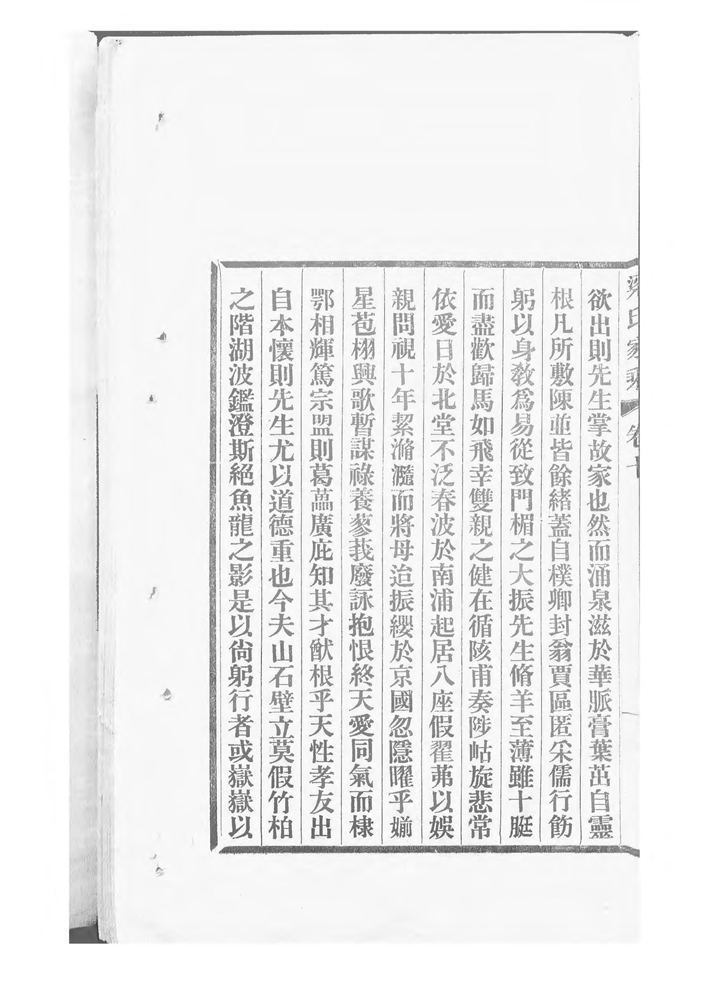 梁氏家
欲出則先生掌故家也然而涌泉滋於華脈膏葉茁自靈
根凡所敷陳並皆餘緒蓋自樸卿封翁賈區匿采儒行飭
躬以身敎爲易從致門楣之大振先生脩羊至薄雖十脡
而盡歡歸馬如飛幸雙親之健在循陔甫奏陟岵旋悲常
依愛日於北堂不泛春波於南浦起居八座假翟茀以娛
親問視十年絜滫瀡而將母迨振纓於京國忽隱曜乎婺
星苞栩興歌暫謀祿養蓼莪廢詠抱恨終天愛同氣而棣
鄂相輝篤宗盟則葛藟廣庇知其才猷根乎天性孝友出
自本懷則先生尤以道德重也今夫山石壁立莫假竹柏
之階湖波鑑澄斯絕魚龍之影是以尙躬行者或嶽嶽以